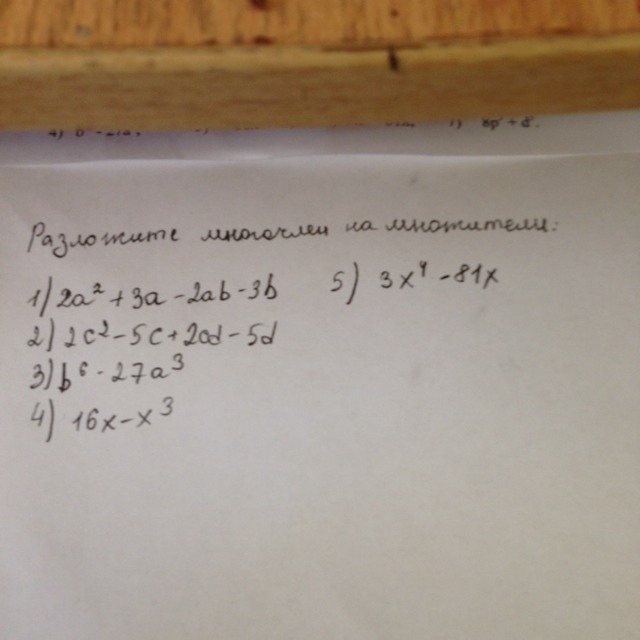 Разложите многочлен на множители:
1) 2a² + 3a - 2ab - 3b
2) 2c² - 5c + 2cd - 5d
3) b⁶ - 27a³
4) 16x - x³
5) 3x⁴ - 81x